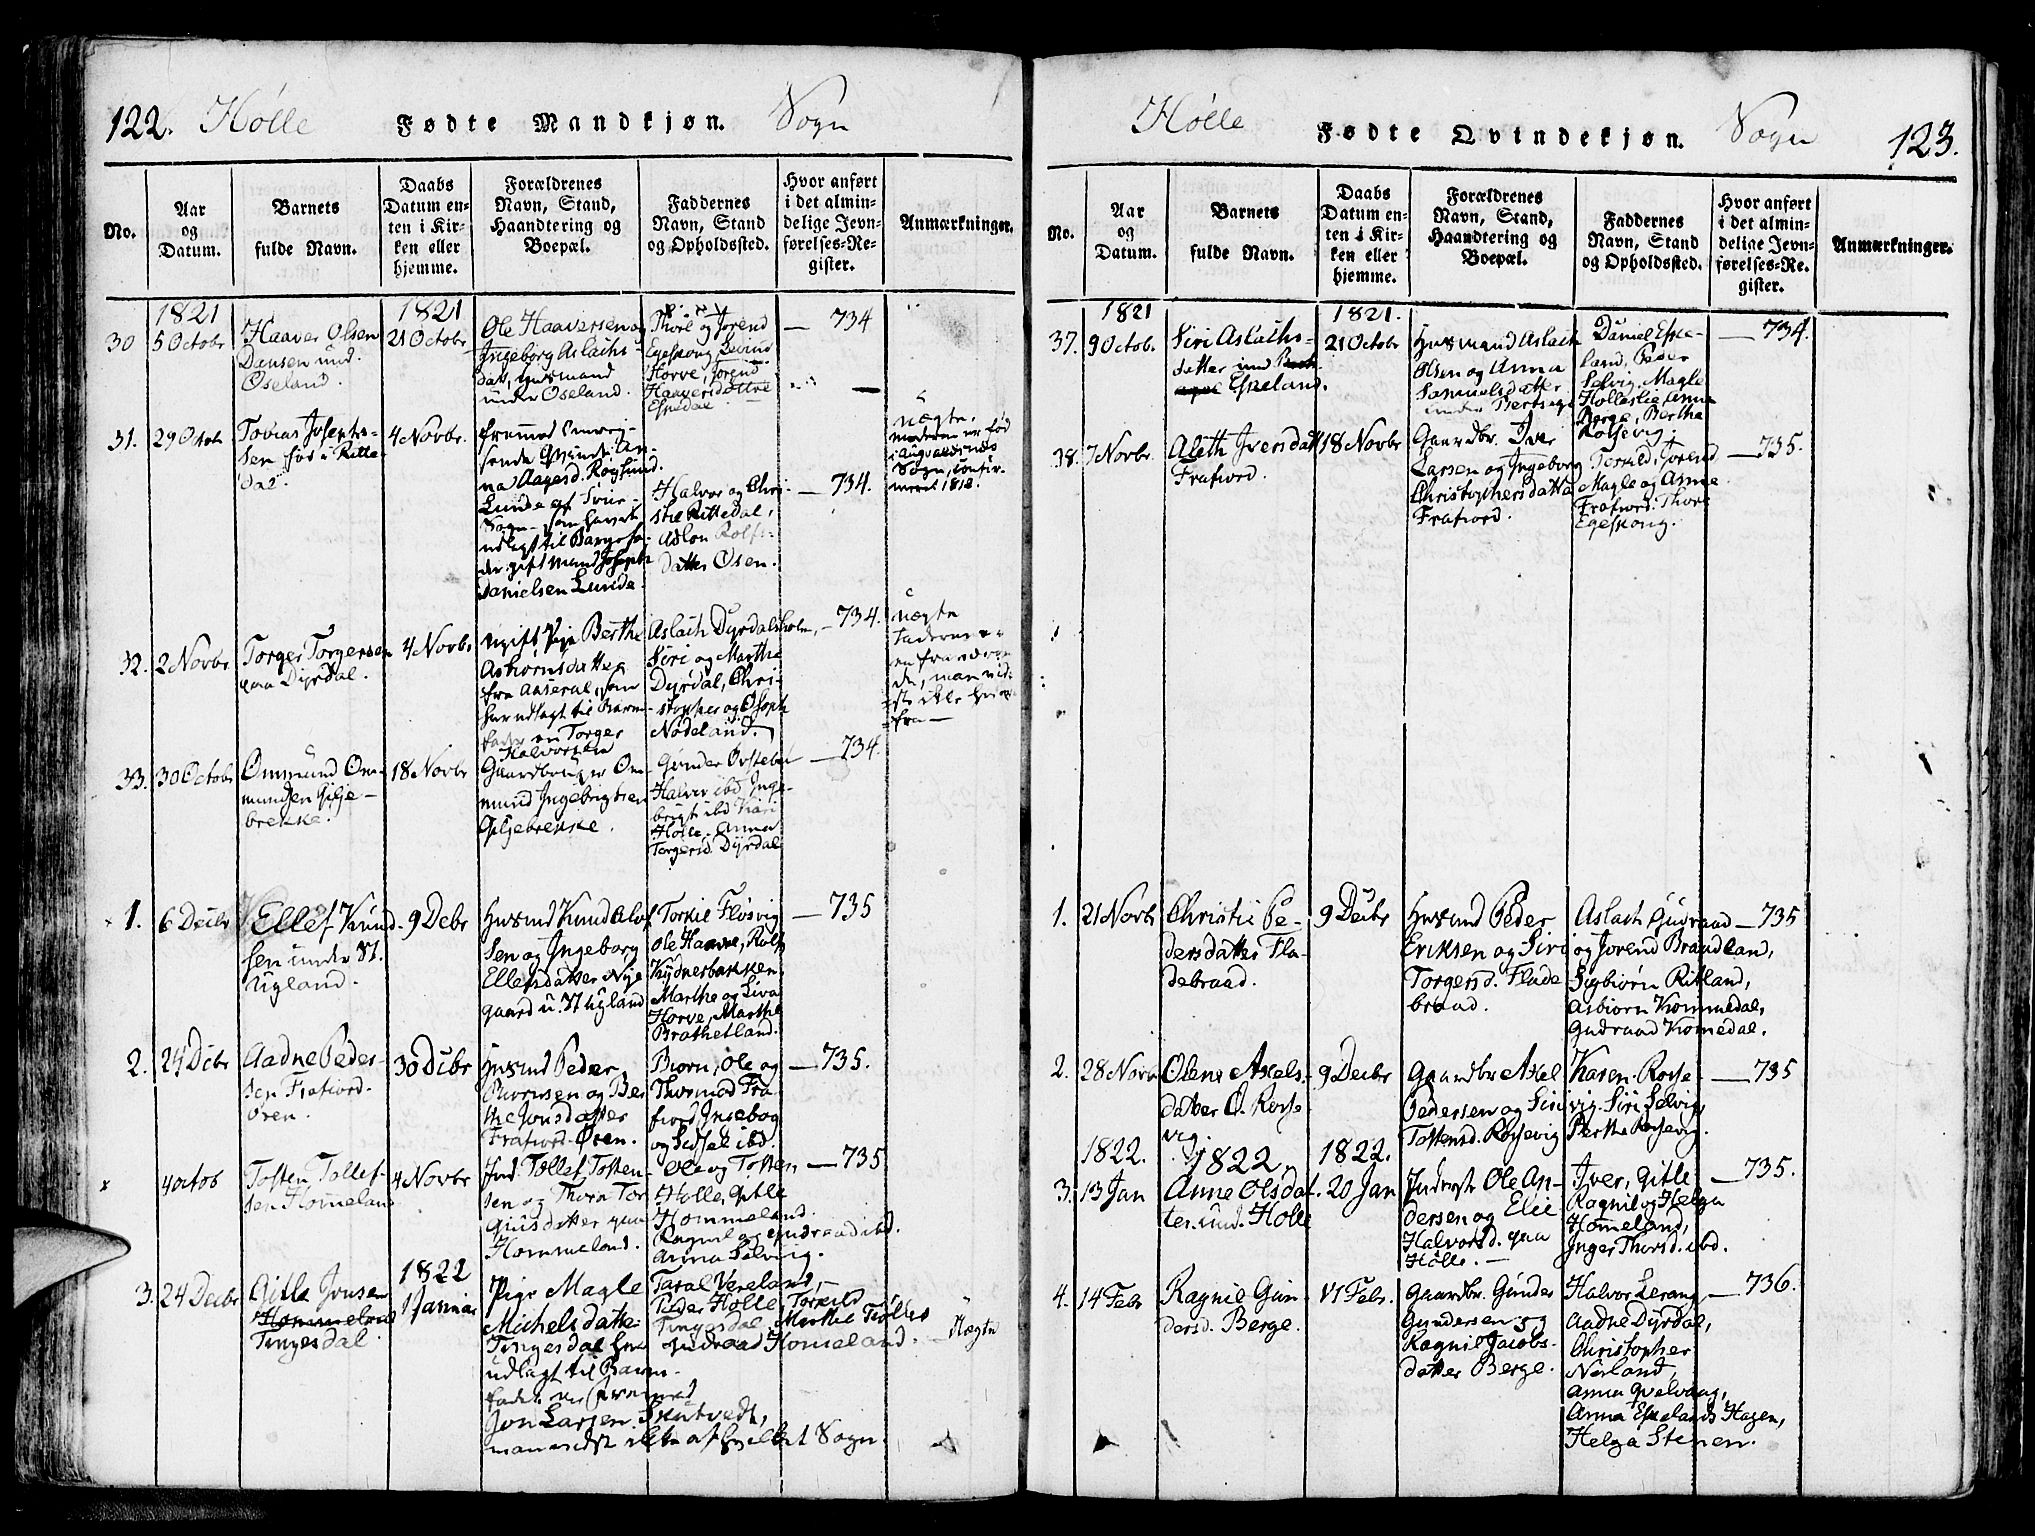 122. Hølle Fødte Mandkjøn. Sogn
No.
Aar
og
Datum.
Barnets
fulde Navn.
Daabs
Datum en-
ten i Kir-
ken eller
hjemme.
Forældrenes
Navn, Stand,
Haandtering og
Boepæl.
Faddernes
Navn, Stand
og Opholdssted.
Hvor anført
i det almin-
delige Jevn-
førelses-Re-
gister.
Anmærkninger.
1821
30
5 Octobr
Haaver Olsen
und.
Øseland.
1821
21 Octobr
Ole Haaversen og
Ingeborg Aslachs-
datt, husmand
under Øseland.
Thore og Jorend
Egeskong
Horve, Jorend
Haaversdatter
Espedal
— 734
31.
29 Octobr
Tobias Josephs-
sen fød i Ritte-
dal.
4 Novbr.
na Aagesd. Roglund.
Lunde af
Sogn - som
udlagt til Barnefa-
der gift Mand Joseph
Danielsen Lunde.
Halvor og Chri-
stie Rittedal,
Aslou Rolfs-
datter Øsen.
— 734.
uægte.
moderen er fød
i Augvaldsnæs
Sogn, confir-
meret 1818.
32.
2 Novbr.
Torger Torgersen
paa Dyrdal.
4 Novbr
ugift Pige Berthe
Asbiørnsdatter
fra Aaseral, som
har udlagt til Barne-
fader en Torger
Halvorsen
Aslach Dyrdalsholm,
Siri og Marthe
Dyrdal, Chri-
stopher og Oseph
Nødeland.
— 734.
uægte
faderen er
en fraværen-
de, man vid-
ste ikke hvor
fra —
33.
30 Octobr
Ommund Om-
mundsen Gilje-
brekke.
18 Novbr
Gaardbruger Om-
mund Ingebrigtsen
Giljebrekke.
Gunder Østebø
Halvor ibd, Inge-
brigt ibd Kari
Hølle. Anna
Torgersd. Dyrdal
— 734.
1.
6 Decbr
Ellef Knud-
sen under St.
Ugland.
9 Debr
Husmd Knud Olof-
sen og Ingeborg
Ellefsdatter Nye
gaard u. St Ugland
Torkil Fløsvig
Ole Haavne, Rolf
Kydnesbakken
Marthe og Siva
Horve, Marthe
Brathetland.
— 735
2.
24 Dcbr
Aadne Peder-
sen Frafiord-
øren.
30 Dcbr
Husmd Peder
Biørnsen og Ber-
the Jonsdatter
Frafiord-Øren.
Biørn, Ole og
Thormod Fra-
fiord, Ingebog
og Sidsel ibd.
— 735.
4 octob
Tosten Tollef-
sen Homeland
4 Novbr
Ind. Tollef Tosten-
sen og Thora Tor-
giusdatter paa
Hommeland.
Ole og Tosten
Holle, Gitle
Hommeland.
Ragnil og Gudraad ibd.
Anna Selvig.
— 735
3.
24 Decbr
Gitle Jonsen
Hommeland
Tingesdal
1822
1 Januar
Pige Magle
Michelsdatte
Tingesdal har
udlagt til Barne-
fader en
Jon Larsen
man vidste ikke af hvilket Sogn.
Taral Veneland,
Peder Holle, Torkild
Tingesdal, Marthe Tiøllos
Gudraad Homeland.
— Uægte
Hølle Fødte Qvindekjøn. Sogn 123.
No.
Aar
og
Datum.
Barnets
fulde Navn.
Daabs
Datum en-
ten i Kir-
ken eller
hjemme.
Forældrenes
Navn, Stand,
Haandtering og
Boepæl.
Faddernes
Navn, Stand
og Opholdssted.
Hvor anført
i det almin-
delige Jevn-
førelses-Re-
gister.
Anmærkninger.
1821
37.
9 Octob.
Siri Aslachs-
datter und
Espeland.
1821.
21 Octobr
Husmand Aslach
Olsen og Anna
Samuelsdatter
under
Daniel Espe-
land, Peder
Selvig, Magle
Hollesli Anna
Berge, Bertha
Rossevig.
— 734.
38.
7 Novbr.
Aleth Iversdatt
Frafiord.
18 Novbr
Gaardbr. Iver
Larsen og Ingeborg
Christophersdatter
Frafiord.
Terkild, Jorend
Magle og Anne
Frafiord. Thore
Egeskong.
— 735.
1.
21 Novbr
Christi Pe-
dersdatter Fla-
debraad.
9 Decbr
Husmd Peder
Eriksen og Siri
Torgersd. Flade
braad.
Aslach Gudraad
og Jorend Brandland,
Sigbiørn Ritland,
Asbiørn Kommedal,
Gudraad Komedal.
— 735
2.
28 Novbr
Olena Axels-
datter O. Rosse
vig.
9 Decbr
Gaardbr Axel
Pedersen og Siri
Tostensd. Rossevig
Karen Rosse-
vig. Siri Selvig,
Berthe Rossevig.
— 735
1822.
1822.
1822.
3.
13 Jan
Anne Olsdat-
ter und. Holle
20 Jan
Inderste Ole An-
dersen og Elie
Halvorsd. paa
Hølle. —
Iver, Gitle
Ragnil og Helga
Homeland,
Inger Thorsd. ibd.
— 735.
4.
14 Febr
Ragnil Gun-
dersd. Berge.
17 Febr.
Gaardbr. Gunder
Gundersen og
Ragnil Jacobs-
datter Berge.
Halvor Lerang,
Aadne Dyrdal,
Christopher
Neiland,
Anna Qvelvaag,
Anna Espelands Hagen,
Helga Stenen.
— 736.